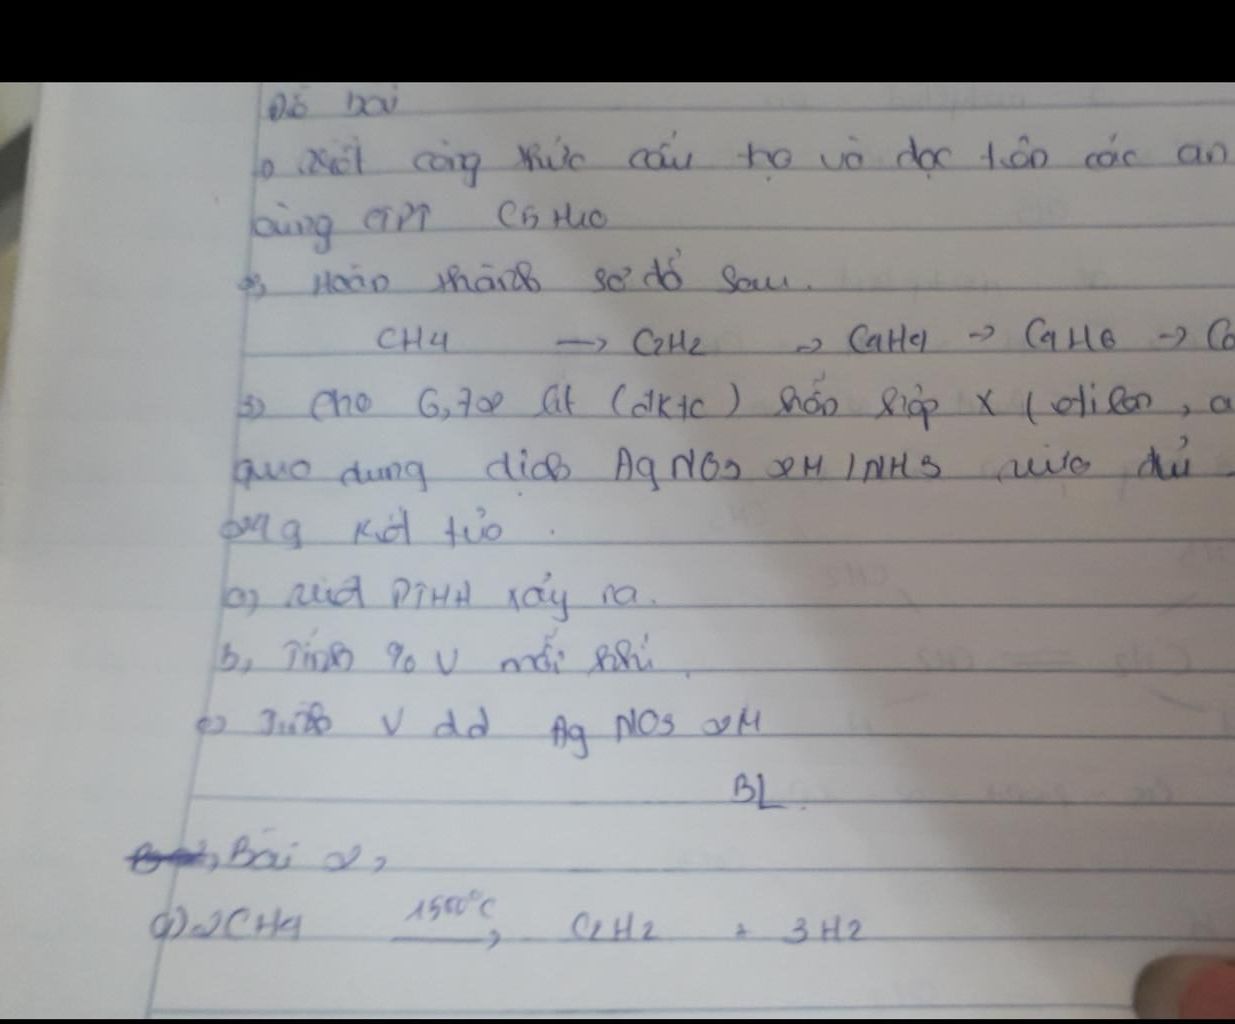 Đề bài
1, Viết công thức cấu tạo và đọc tên các an
bằng CTPT C5H10
2, Hoàn thành sơ đồ sau.
CH4 → C2H2 → C4H4 → C4H6 → C
3) Cho 6,72 lít (đktc) hỗn hợp X (etilen, a
qua dung dịch AgNO3 2M/NH3 vừa đủ
g kết tủa.
a) viết PTHH xảy ra.
b, Tính % V mỗi khí.
c) Tính V dd AgNO3 2M
BL
Bài 2,
a) 2CH4 1500°C → C2H2 + 3H2